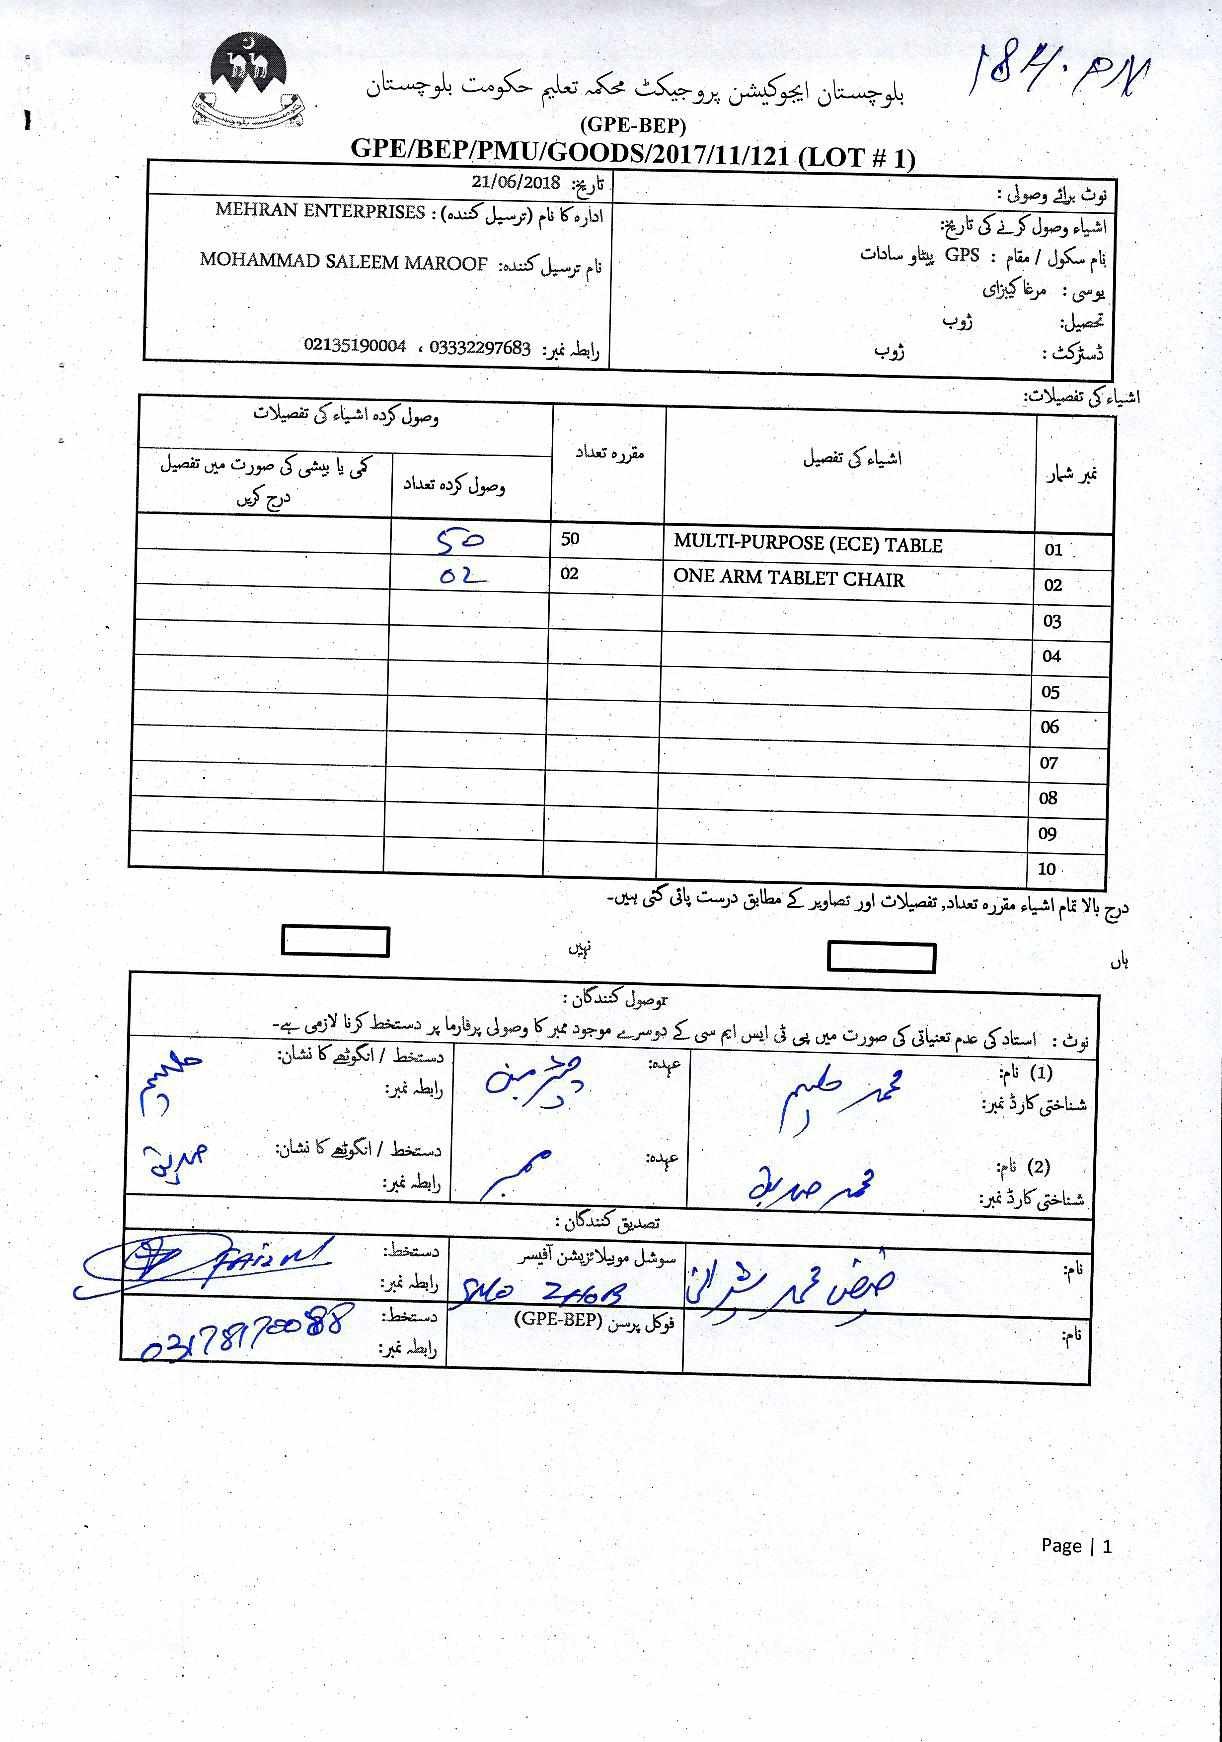 بلوچستان ایجوکیشن پروجیکٹ محکمہ تعلیم حکومت بلوچستان
(GPE-BEP)
GPE/BEP/PMU/GOODS/2017/11/121 (LOT # 1)
نوٹ برائے وصولی :
اشیاء وصول کرنے کی تاریخ:
نام سکول / مقام : GPS پیٹاو سادات
یوسی : مرغا کبزای
تحصیل: ژوب
ڈسٹرکٹ : ژوب
تاریخ: 21/06/2018
ادارہ کا نام (ترسیل کنندہ) : MEHRAN ENTERPRISES
نام ترسیل کنندہ: MOHAMMAD SALEEM MAROOF
رابطہ نمبر: 03332297683 ، 02135190004
اشیاء کی تفصیلات:
نمبر شمار
اشیاء کی تفصیل
مقررہ تعداد
وصول کردہ اشیاء کی تفصیلات
وصول کردہ تعداد
کمی یا بیشی کی صورت میں تفصیل
درج کریں
01 MULTI-PURPOSE (ECE) TABLE 50 50
02 ONE ARM TABLET CHAIR 02 02
03
04
05
06
07
08
09
10
درج بالا تمام اشیاء مقررہ تعداد, تفصیلات اور تصاویر کے مطابق درست پائی گئی ہیں۔
ہاں
نہیں
وصول کنندگان :
نوٹ : استاد کی عدم تعنیاتی کی صورت میں پی ٹی ایس ایم سی کے دوسرے موجود ممبر کا وصولی پرفارما پر دستخط کرنا لازمی ہے۔
(1) نام: محمد حلیم
عہدہ: چئیرمین
دستخط / انگوٹھے کا نشان: حلیم
شناختی کارڈ نمبر:
رابطہ نمبر:
(2) نام: محمد صدیق
عہدہ: ممبر
دستخط / انگوٹھے کا نشان: صدیق
شناختی کارڈ نمبر:
رابطہ نمبر:
تصدیق کنندگان :
نام: فیض محمد شیرانی
سوشل موبیلائزیشن آفیسر
SMO ZHOB
دستخط: FAIZM
رابطہ نمبر:
نام:
فوکل پرسن (GPE-BEP)
دستخط:
رابطہ نمبر: 03178170088
Page | 1